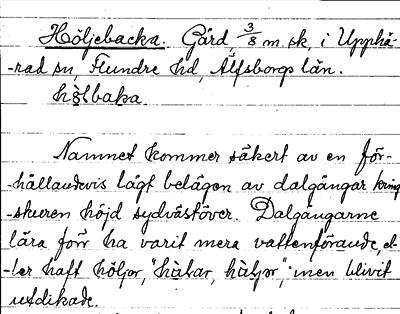 Höljebacka. Gård, 3/8 m. sk, i Upphä-
-rad sn, Flundre hd, Älfsborgs län.
Namnet kommer säkert av en för-
-hållandevis lågt belägen av dalgångar kring-
-skuren höjd sydvästöver. Dalgångarne
lära förr ha varit mera vattenförande, el-
-ler haft höljor, "hàlar, hàljor," men blivit
utdikade.